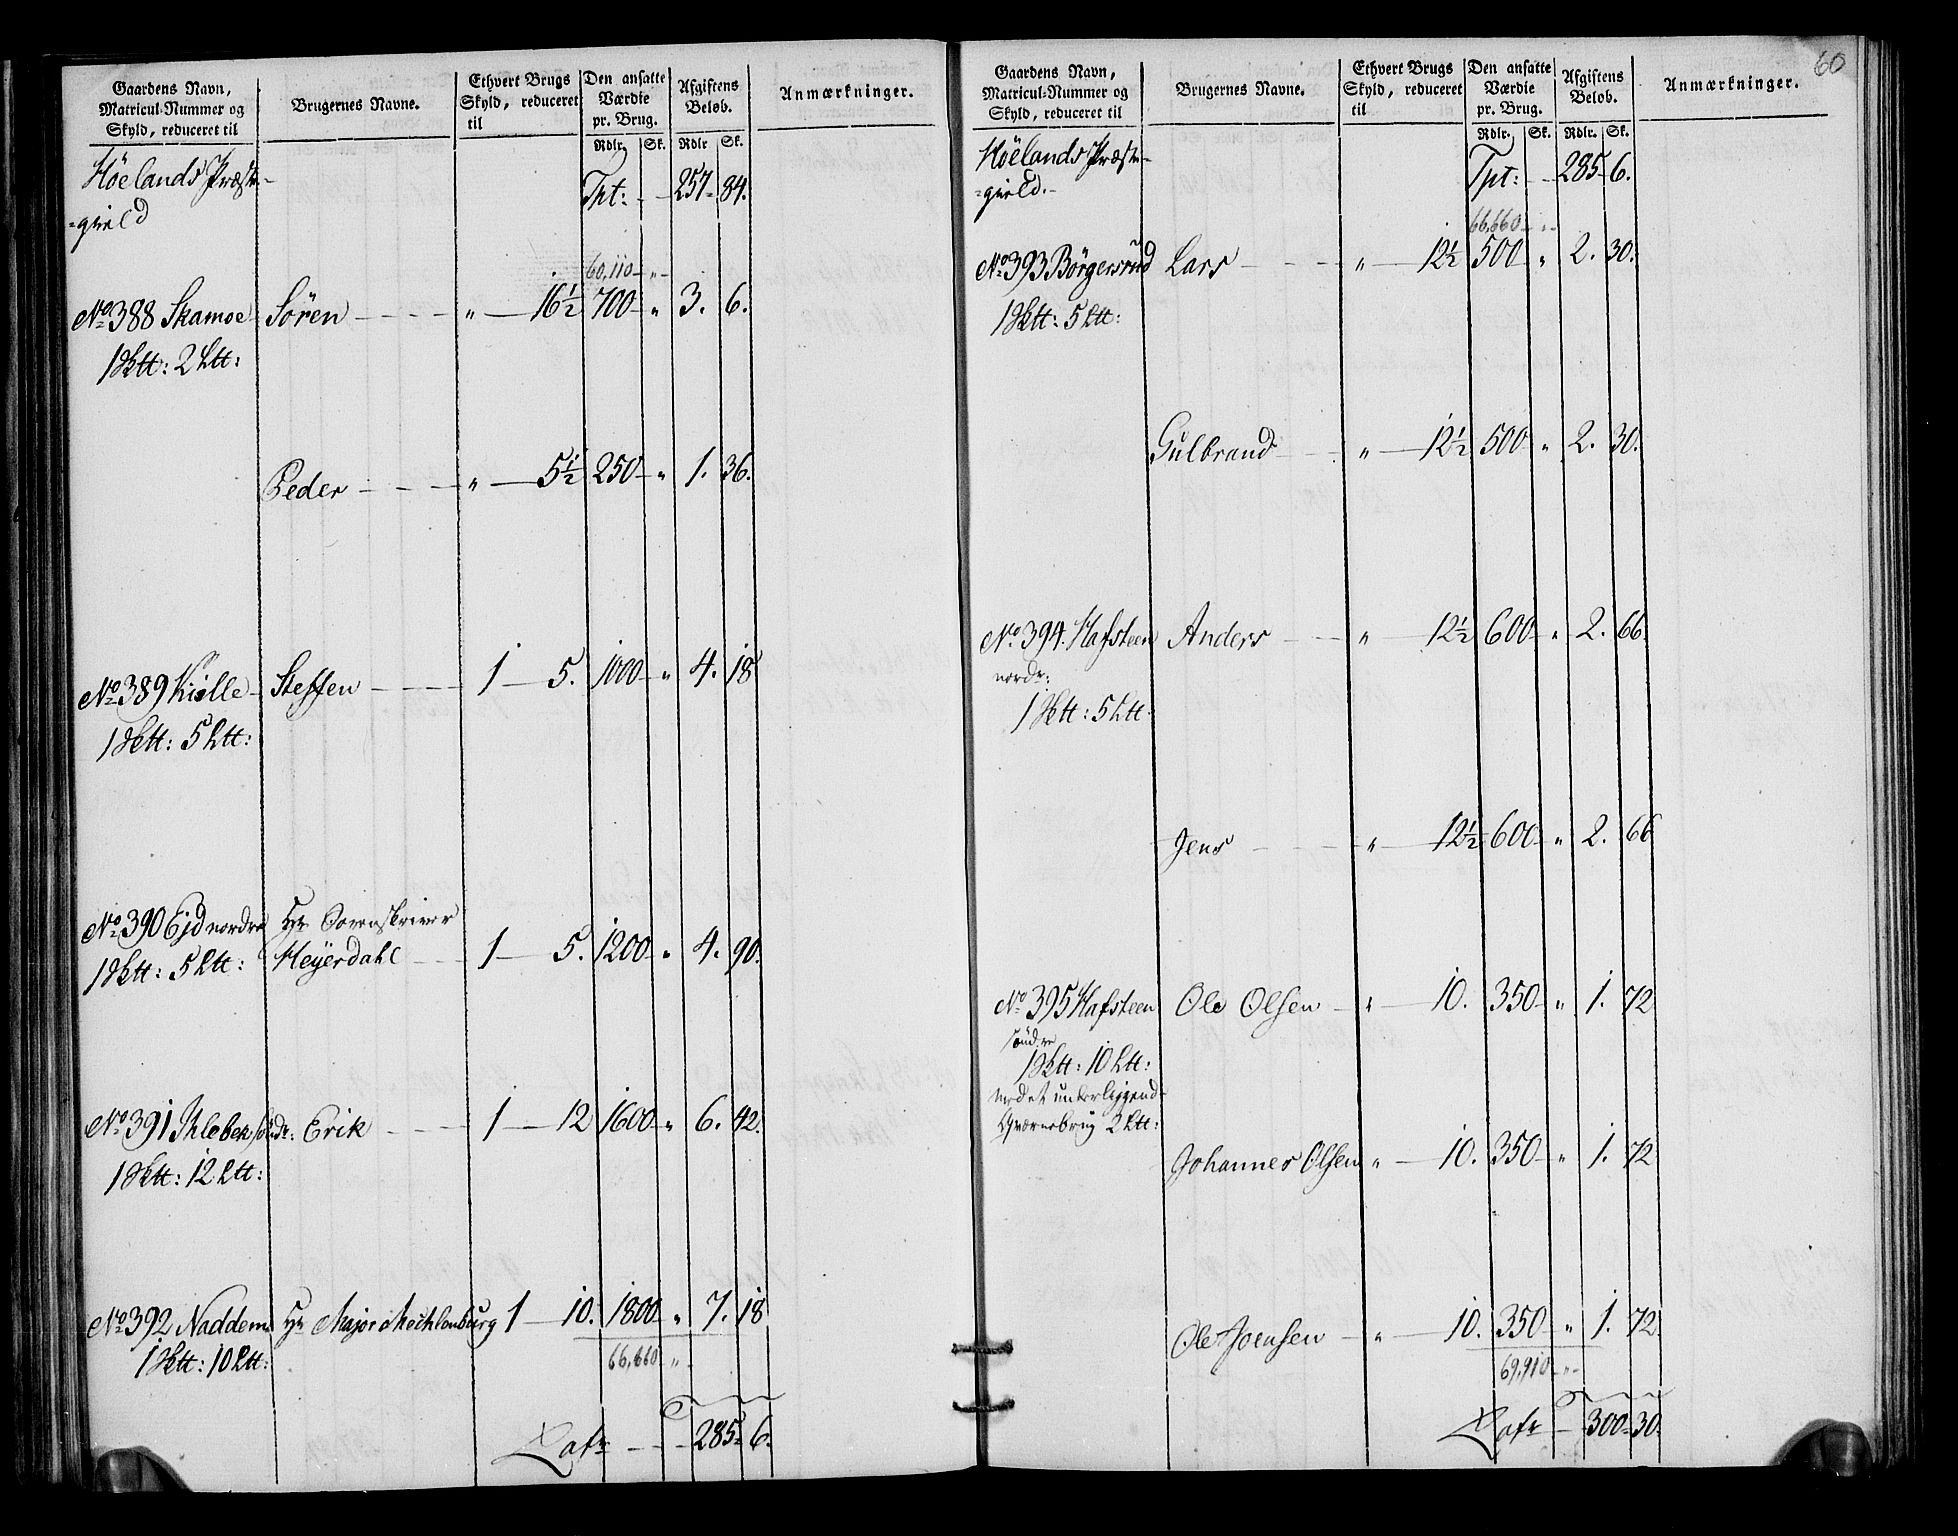 Gaardens Navn,
Matricul-Nummer og
Skyld, reduceret til
Brugernes Navne.
Ethvert Brugs
Skyld, reduceret
til
Den ansatte
Værdie
pr. Brug.
Afgiftens
Beløb.
Anmærkninger.
Rdlr. Sk. Rdlr Sk.
Höelands Præste- Tpt: - - 257- 84.
=gield
60,110 - " -
No 388 Skamoe - Sören - - - - " - 16½ 700 - " 3. 6.
1 Skt: 2 Lt:
Peder - - - - " - 5½ 250 - " 1. 36.
No 389 Kiölle - Steffen - - - - 1 - 5. 1000 - " 4. 18
1 Skt: 5 Lt:
No 390 Ejd nordre Hr Sorenskriver
1 Skt: 5 Lt: Meyerdahl - - - 1 - 5. 1200 - " 4. 90.
No 391 Ihlebek söndr: Erik - - - - 1 - 12 1600 - " 6. 42.
1 Skt: 12 Lt:
No 392 Naddem Hr Major Mechlenburg 1 - 10. 1800 - " 7. 18
1 Skt: 10 Lt:
66,660 " -
Latr - - - 285- 6.
60
Gaardens Navn,
Matricul-Nummer og
Skyld, reduceret til
Brugernes Navne.
Ethvert Brugs
Skyld, reduceret
til
Den ansatte
Værdie
pr. Brug.
Afgiftens
Beløb.
Anmærkninger.
Rdlr. Sk. Rdlr. Sk.
Höelands Præste- Tpt: - - 285- 6.
=gield. -
66,660 - " -
No 393 Börgersrud Lars - - - - " - 12½ 500 - " 2. 30.
1 Skt: 5 Lt:
Gulbrand - - - " - 12½ 500 - " 2. 30.
No 394. Hafsteen Anders - - - " - 12½ 600 - " 2. 66.
nordr:
1 Skt: 5 Lt:
Jens - - - - " - 12½ 600 - " 2. 66
No 395 Hafsteen Ole Olsen - " - 10. 350 - " 1. 72
söndre
1 Skt: 10 Lt:
med et underliggend-
Qværnebrug 2 Lt:
Johannes Olsen " - 10. 350 - " 1. 72
Ole Joensen - " - 10. 350 - " 1. 72
69,910 - " -
Latr - - 300- 30.